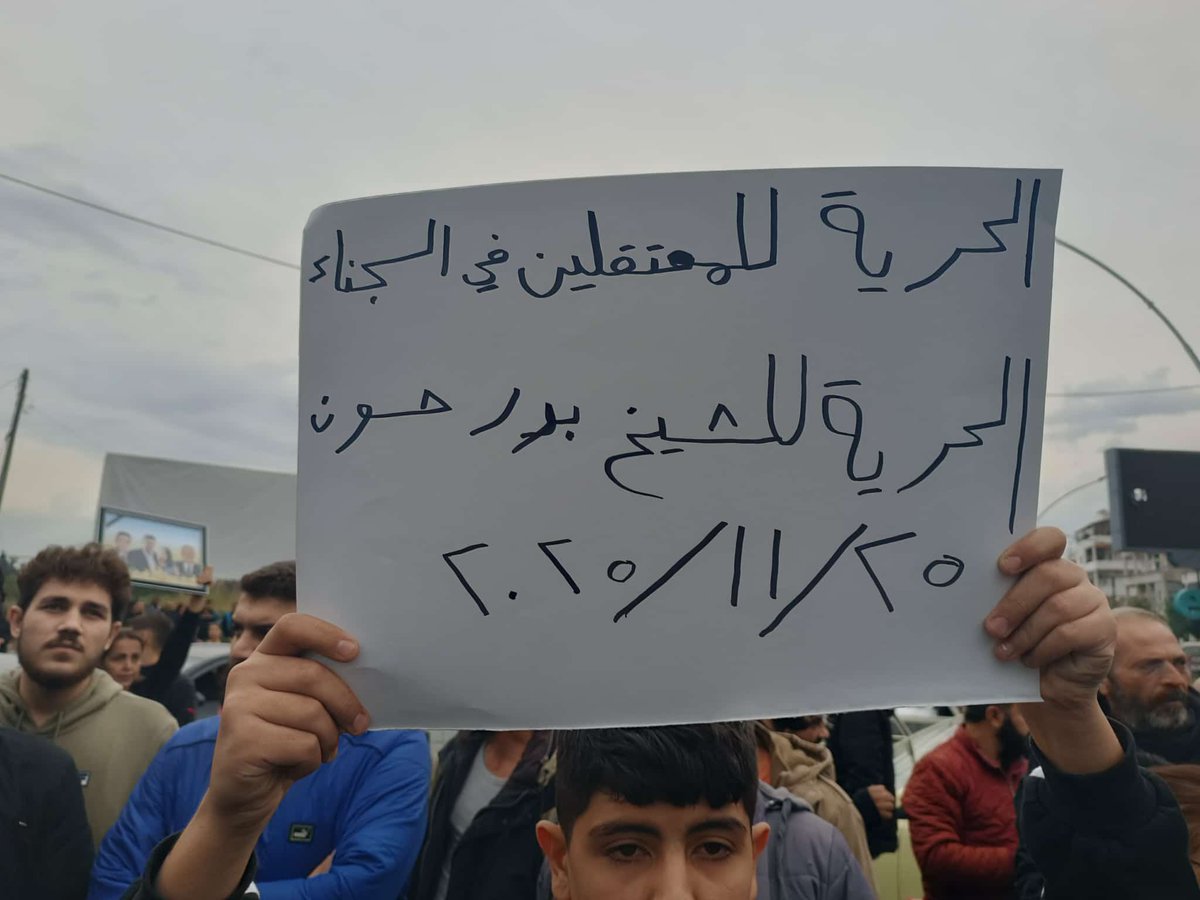 الحرية للمعتقلين في السجناء
الحرية للشيخ بدر حسون
٢٥/١١/٢٠٢٥